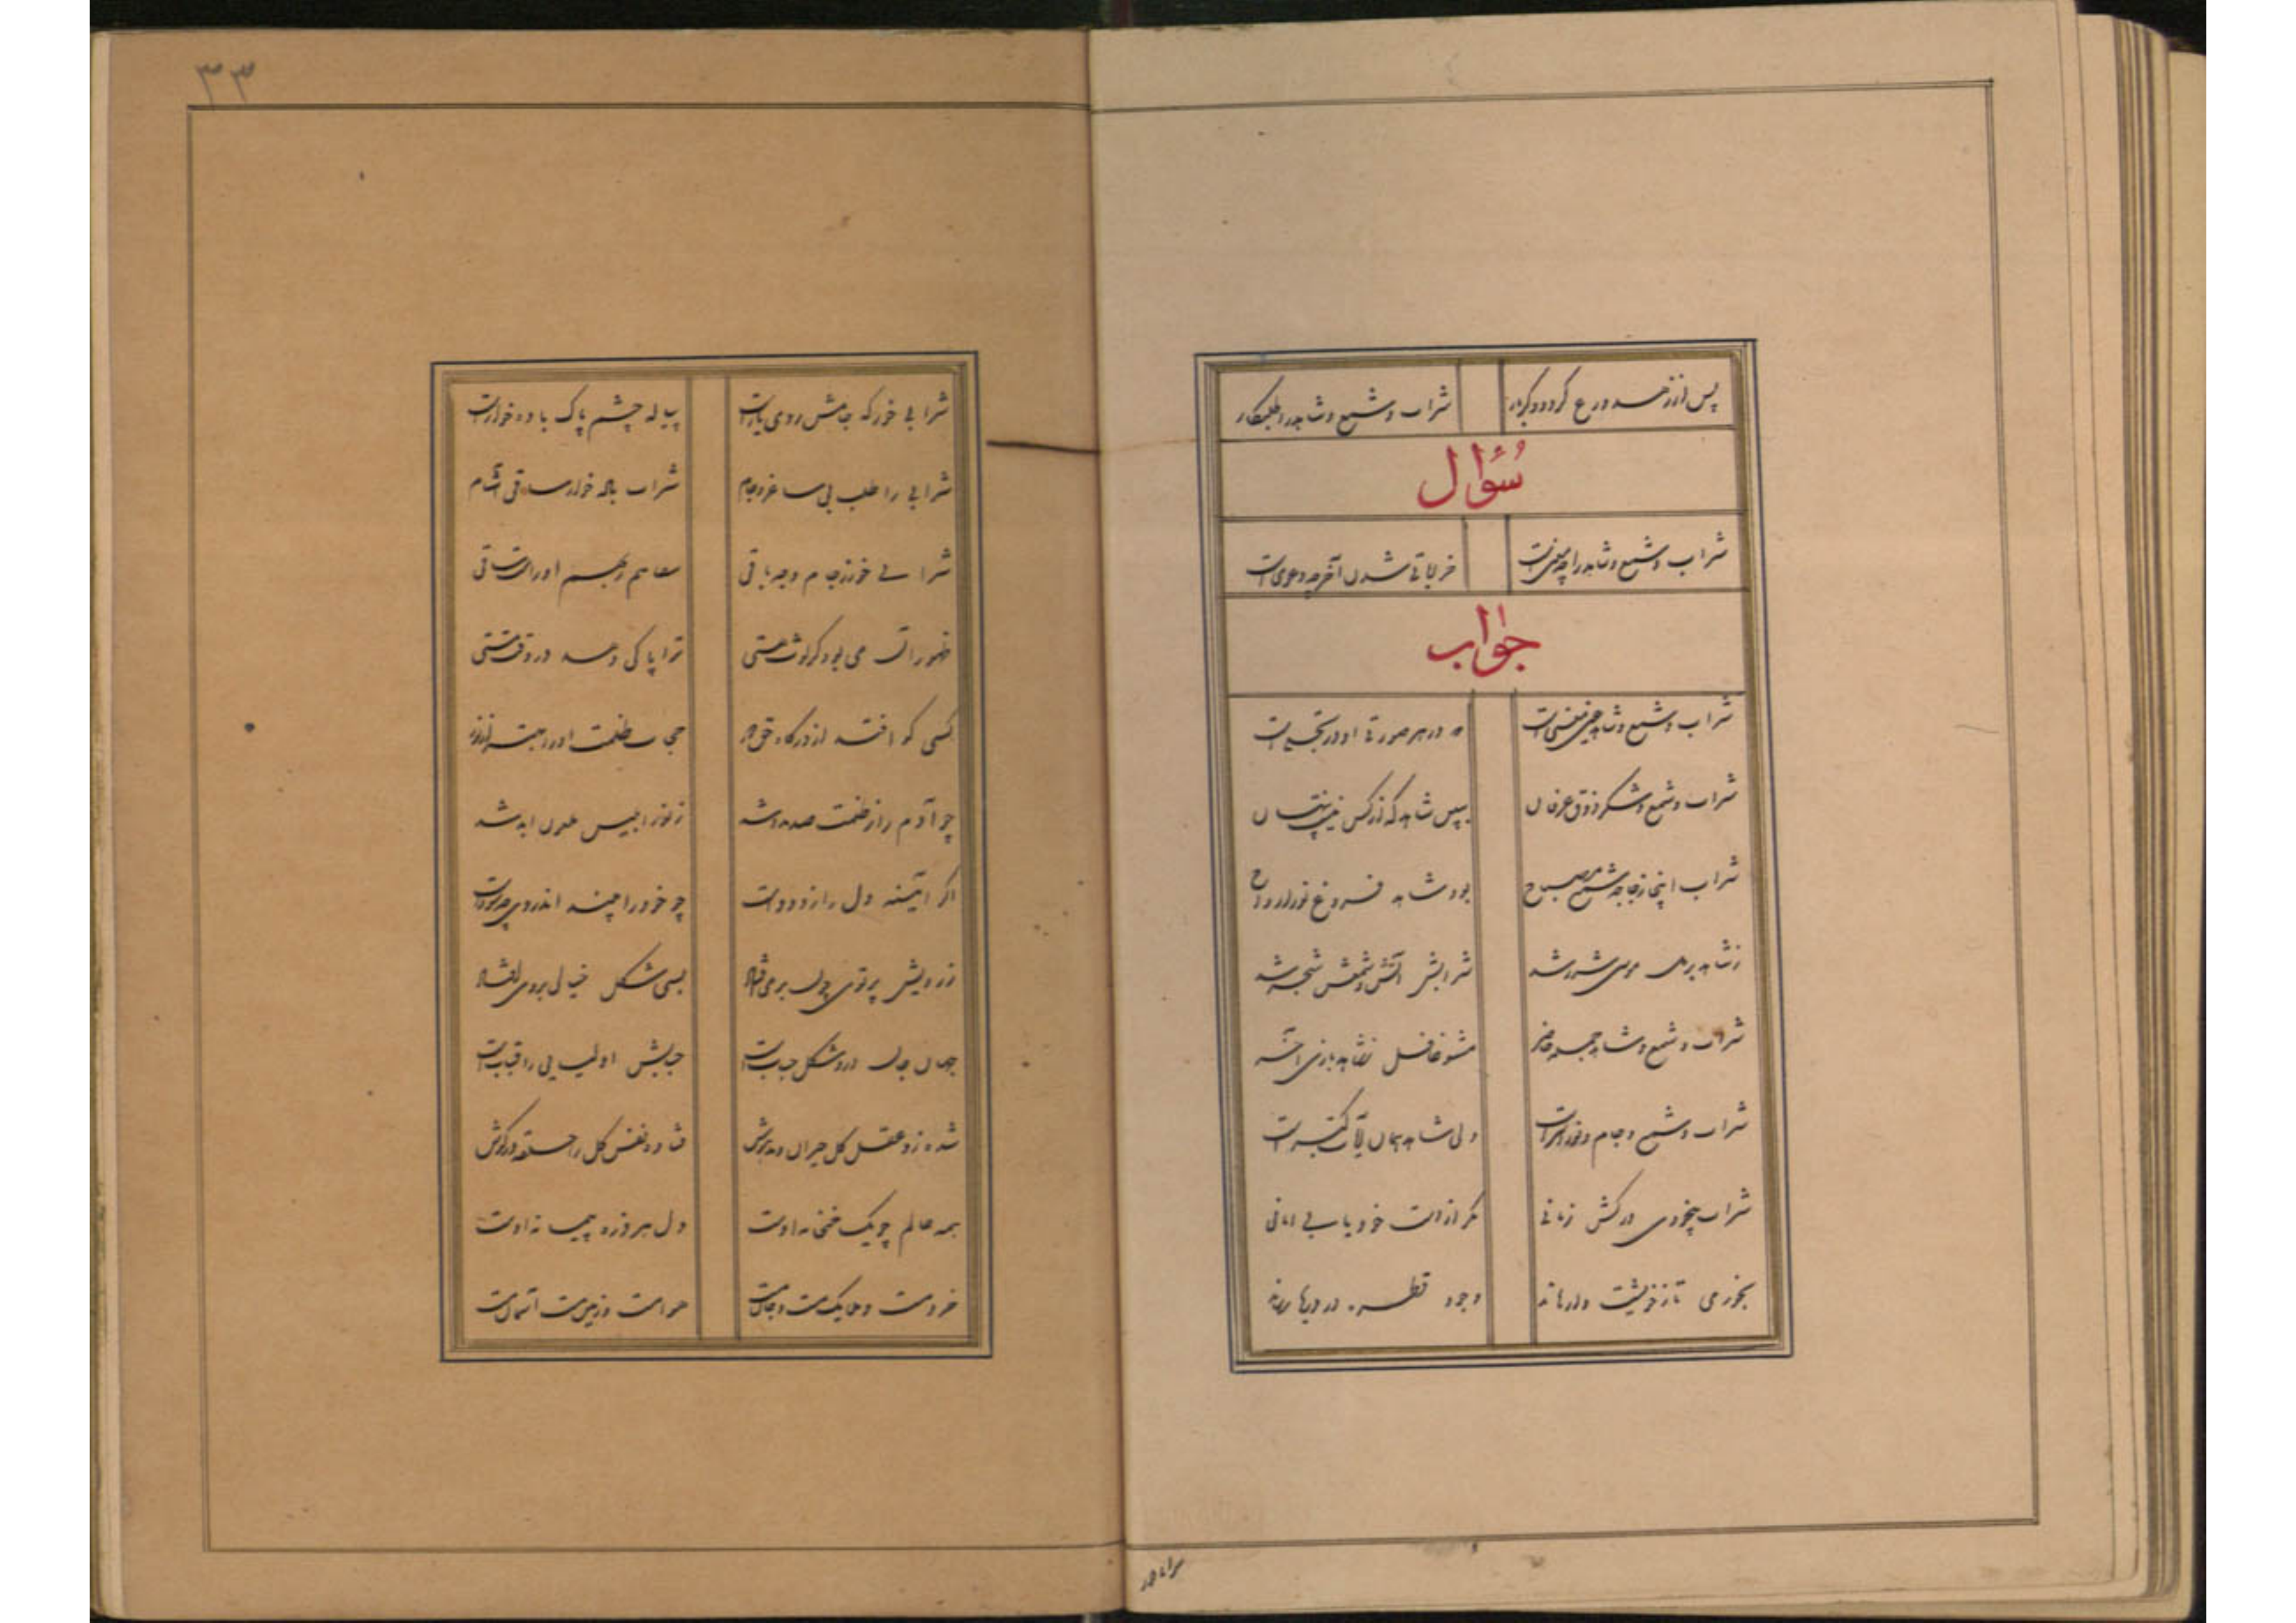 پس از زهد و ورع گردد دگر بار شراب و شمع و شاهد را طلبکار
سُؤال
شراب و شمع و شاهد را چه معنیست خراباتی شدن آخر چه دعویست
جواب
شراب و شمع و شاهد عین معنیست که در هر صورتی او را تجلیست
شراب و شمع و سکر ذوق عرفان ببین شاهد که از کس نیست پنهان
شراب اینجا زجاجه شمع مصباح بود شاهد فروغ نور ارواح
ز شاهد بر دل موسی شرر شد شرابش آتش و شمعش شجر شد
شراب و شمع و شاهد جمله حاضر مشو غافل ز شاهد بازی آخر
شراب و شمع و جام و نور اسراست ولی شاهد همان آیات کبراست
شراب بیخودی درکش زمانی مگر از دست خود یابی امانی
بخور می تا ز خویشت وارهاند وجود قطره در دریا رساند
۳۳
شرابی خور که جامش روی یارست پیاله چشم پاک باده خوارست
شرابی را طلب بی ساغر و جام شراب باده خوار ساقی آشام
شرابی خور ز جام وجه باقی سقاهم ربهم او راست ساقی
طهور آن می بود کز لوث هستی ترا پاکی دهد در وقت مستی
کسی کو افتد از درگاه حق دور حجاب ظلمت او را بهتر از نور
چو آدم را ز ظلمت صد مدد شد ز نور ابلیس ملعون ابد شد
اگر آئینه دل را زدودست چو خود را بیند اندر وی چه سودست
ز رویش پرتوی چون بر می افتاد بسی شکل حبابی بر وی افتاد
جهان جان در او شکل حبابست حبابش اولیایی را قبابست
شده زو عقل کل حیران و مدهوش فتاده نفس کل را حلقه در گوش
همه عالم چو یک خمخانه اوست دل هر ذره پیمانه اوست
خرد مست و ملایک مست و جان مست هوا مست و زمین مست آسمان مست